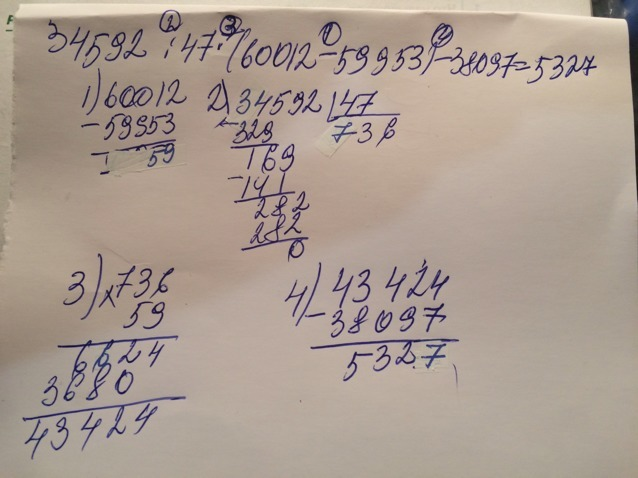 ② ③ ① ④
34592 : 47 · (60012 - 59953) - 38097 = 5327
1) 60012 2) 34592 47
- 59953 - 329 736
59 169
- 141
282
282
0
3) x 736 4) - 43424
59 38097
6624 5327
3680
43424